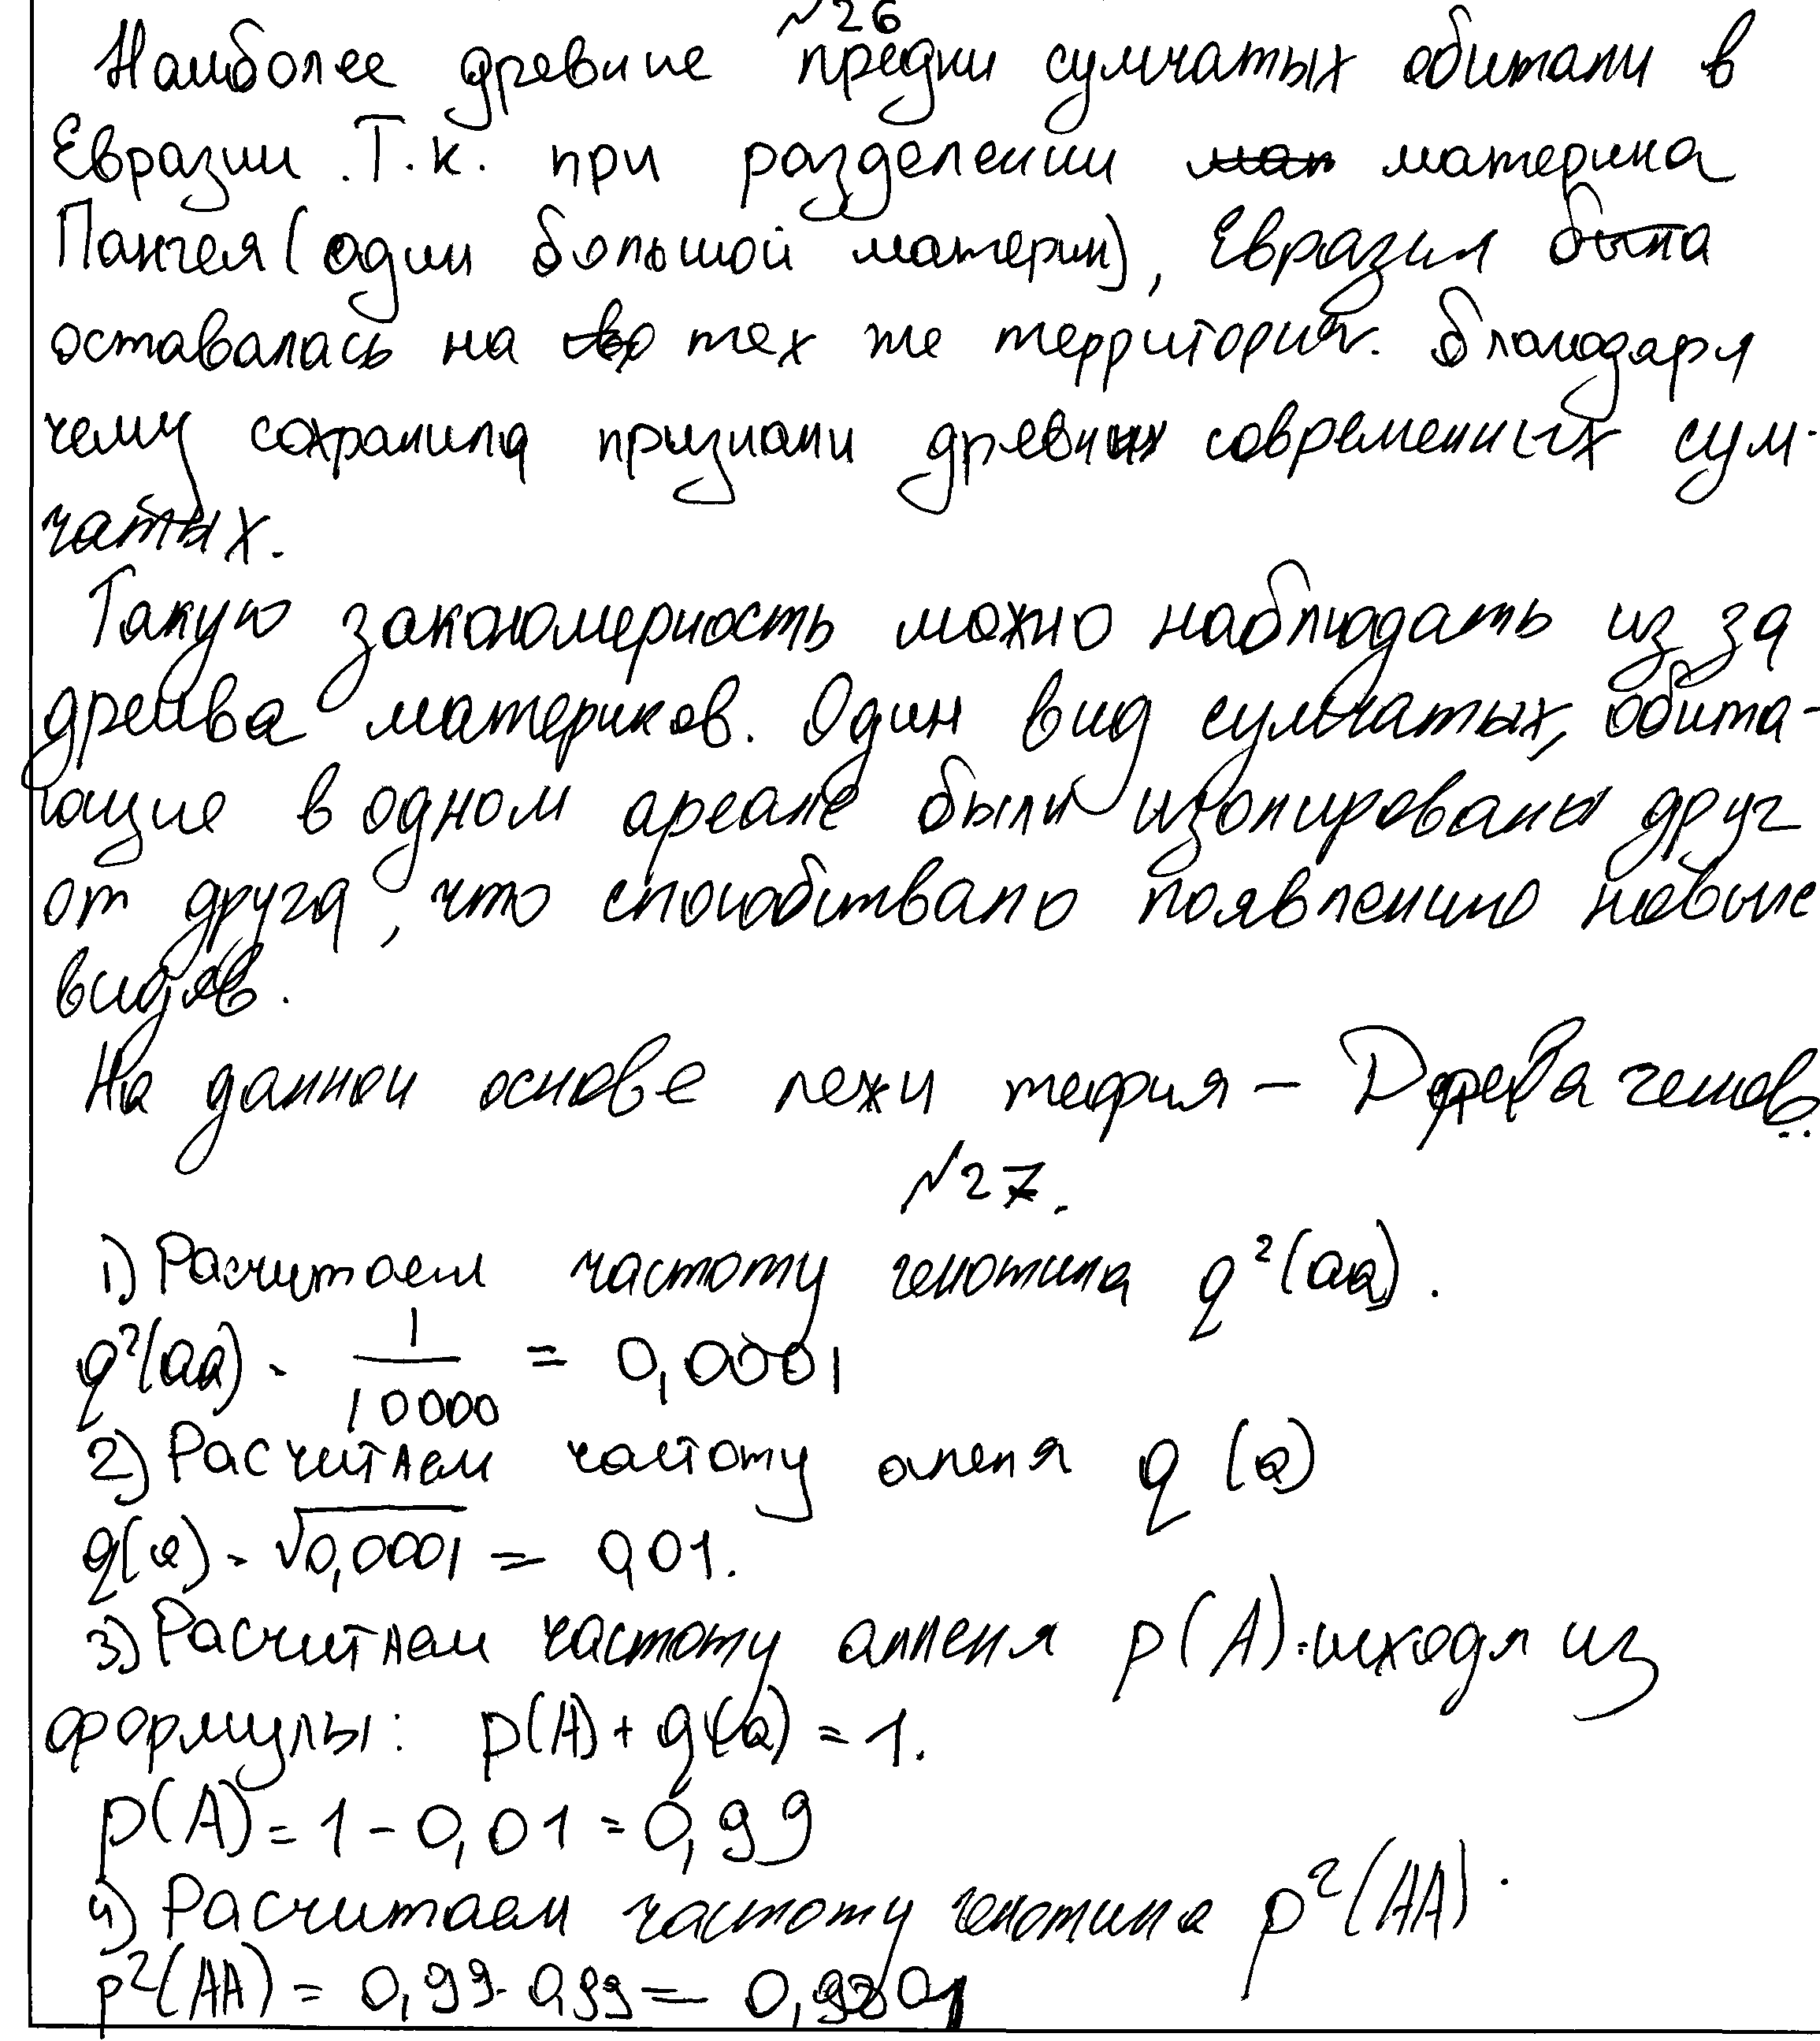 №26
Наиболее древние предки сумчатых обитали в
Евразии. Т.к. при разделении мат материка
Пангея (один большой матери), Евразия была
оставалась на тех же территория. благодаря
чему сохранила признаки древних современных сум-
чатых.
Такую закономерность можно наблюдать из за
дрейва материков. Один вид сумчатых, обита-
ющие в одном ареале были изолированы друг
от друга, что способствало появлению новые
видов.
На данной основе лежи теория – Дрейва генов.
№27.
1) Расчитаем частоту генотипа q²(aa).
q²(aa) = 1/10000 = 0,0001
2) Расчитаем частоту алеля q (a)
q(a) = √0,0001 = 0,01.
3) Расчитаем частоту аллеля p(A) исходя из
формулы: p(A) + q(a) = 1.
p(A) = 1 - 0,01 = 0,99
4) Расчитаем частоту генотипа p²(AA).
p²(AA) = 0,99 · 0,99 = 0,9801